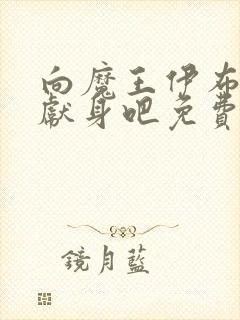 向魔王伊布
獻身吧免費
鏡月藍